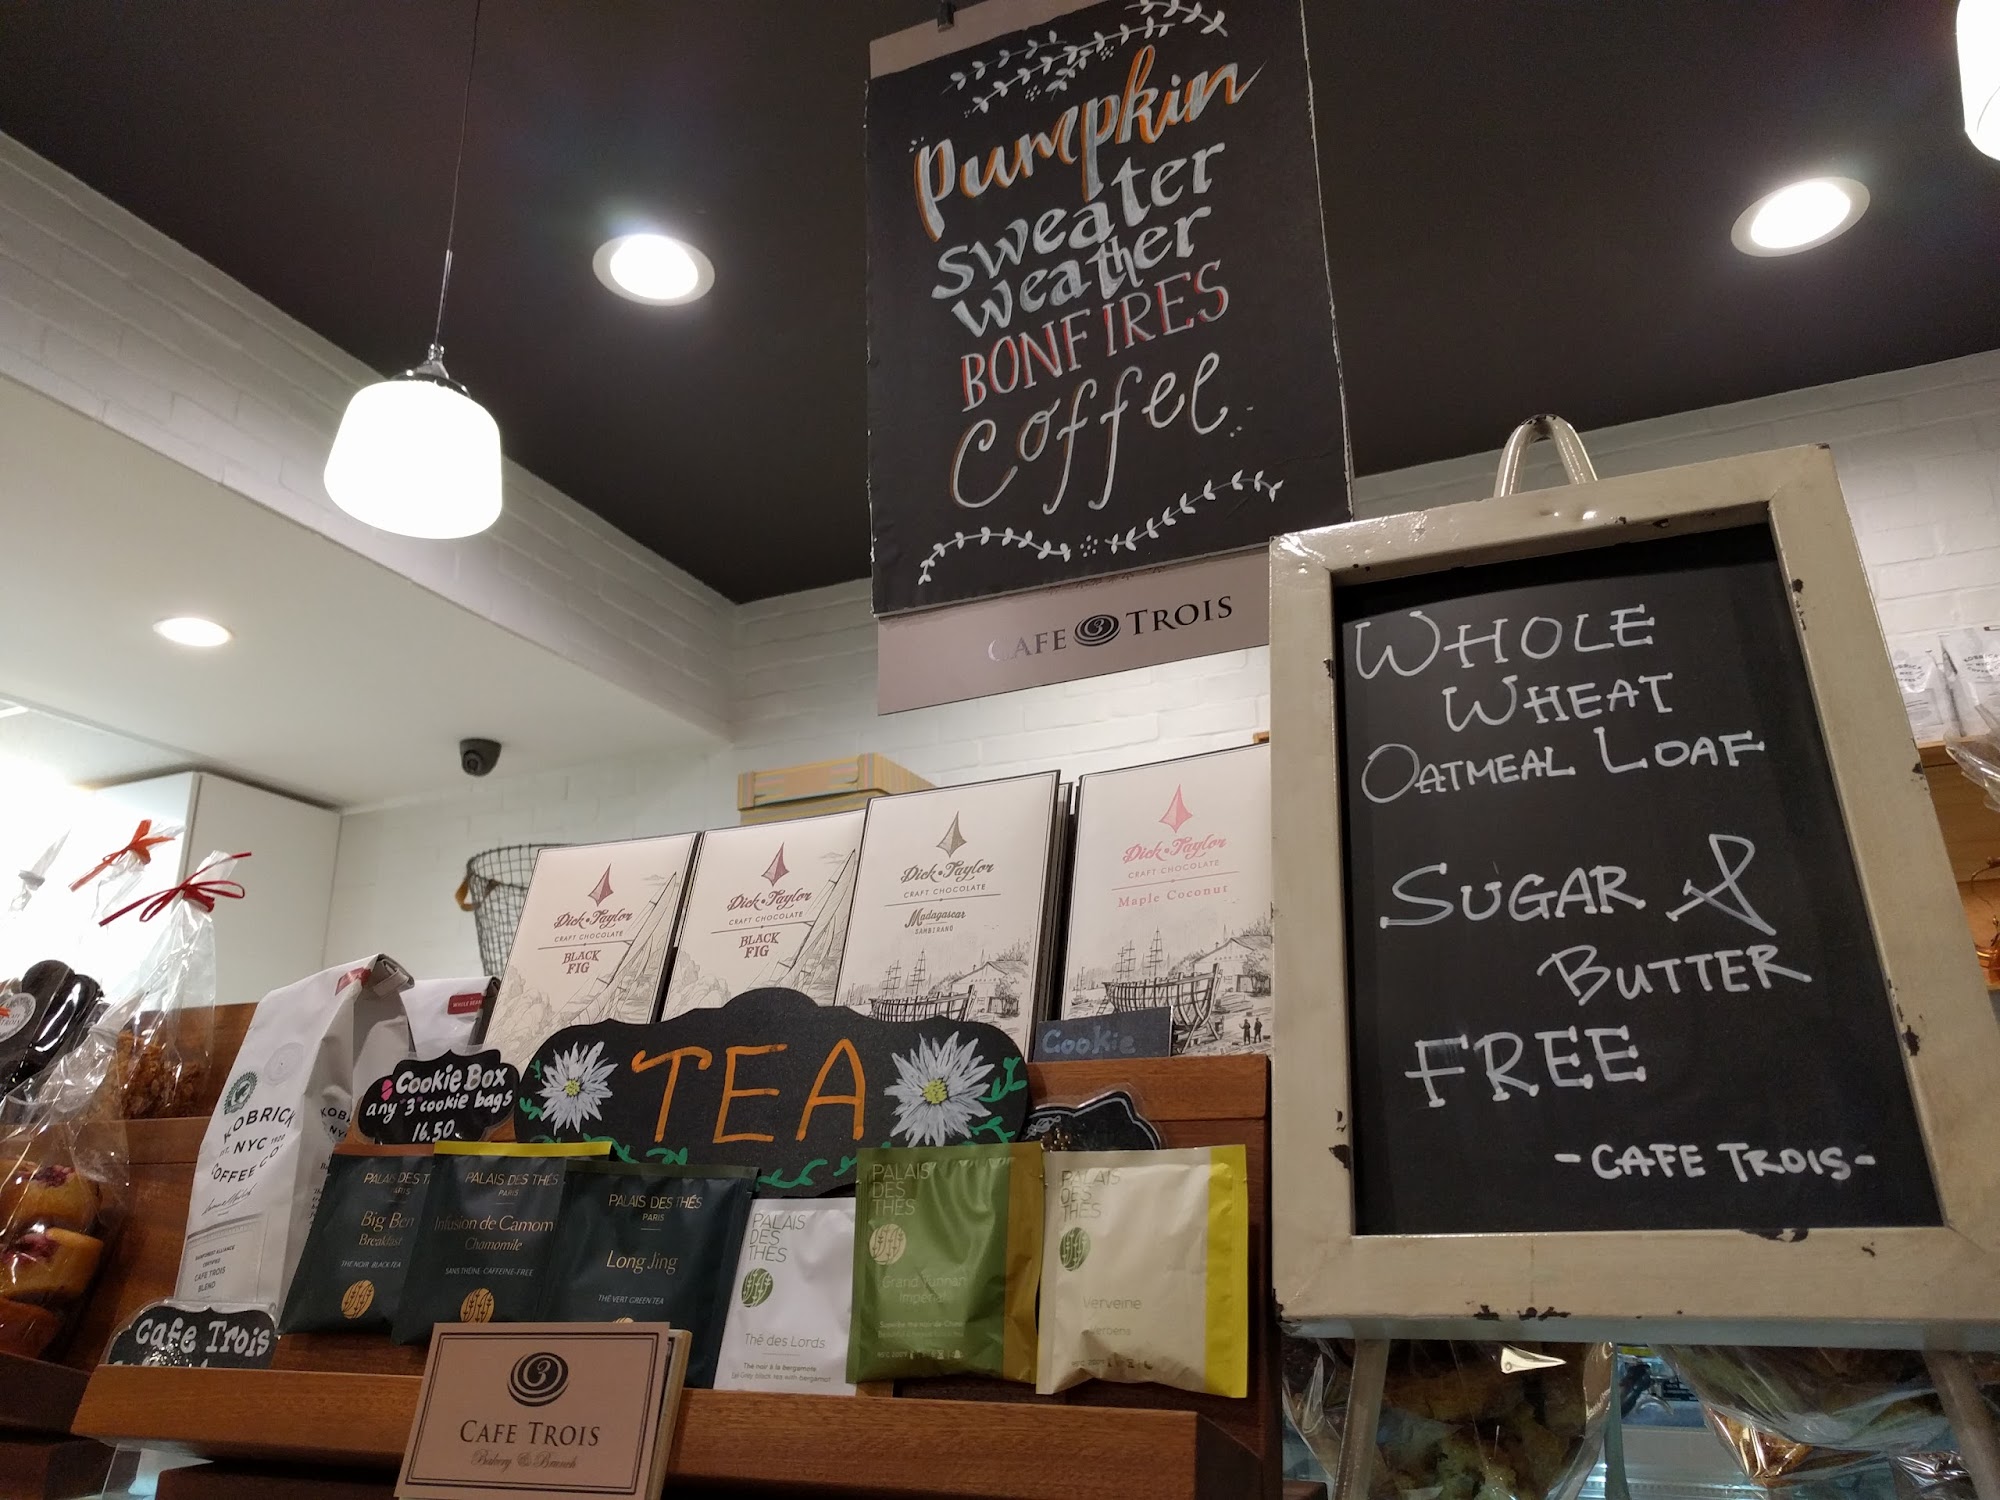 Pumpkin
sweater
weather
BONFIRES
Coffee
CAFE 3 TROIS
WHOLE
WHEAT
OATMEAL LOAF
SUGAR &
BUTTER
FREE
-CAFE TROIS-
Dick·Taylor
CRAFT CHOCOLATE
BLACK
FIG
Dick·Taylor
CRAFT CHOCOLATE
BLACK
FIG
Dick·Taylor
CRAFT CHOCOLATE
Madagascar
SAMBIRANO
Dick·Taylor
CRAFT CHOCOLATE
Maple Coconut
Cookie
TEA
COOKIE BOX
any "3" cookie bags
16.50
KOBRICK
EST. NYC 1920
COFFEE CO.
RAINFOREST ALLIANCE
CERTIFIED
CAFE TROIS
BLEND
WHOLE BEAN
Cafe Trois
PALAIS DES T
PARIS
Big Ben
Breakfast
THÉ NOIR BLACK TEA
PALAIS DES THÉS
PARIS
Infusion de Camom
Chamomile
SANS THÉINE CAFFEINE-FREE
PALAIS DES THÉS
PARIS
Long Jing
THÉ VERT GREEN TEA
PALAIS
DES
THÉS
Thé des Lords
Thé noir à la bergamote
Earl Grey black tea with bergamot
PALAIS
DES
THÉS
Grand Yunnan
Impérial
PALAIS
DES
THÉS
Verveine
Verbena
3
CAFE TROIS
Bakery & Brunch